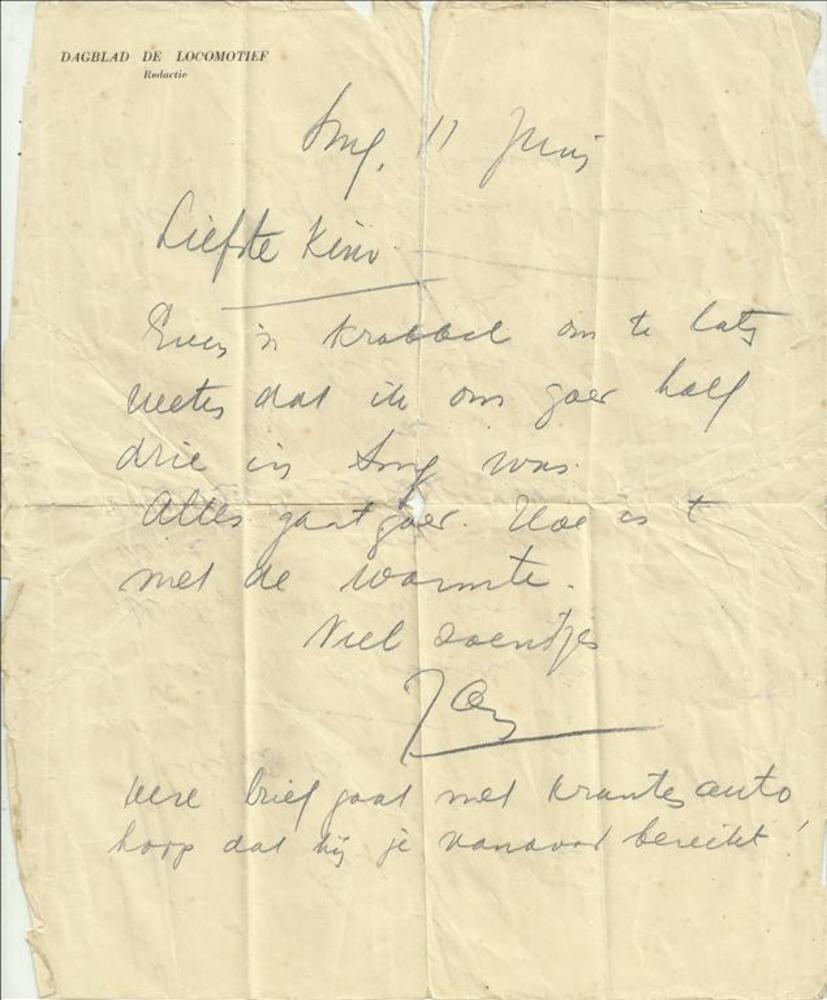 DAGBLAD DE LOCOMOTIEF
Redactie
Smg, 11 Juni
Liefste Kind
Even 'n krabbel om te laten
weten dat ik om goed half
drie in Smg was.
Alles gaat goed. Hoe is t
met de warmte.
Veel zoentjes
Jan
Deze brief gaat met krantenauto
hoop dat hij je vanavond bereikt!